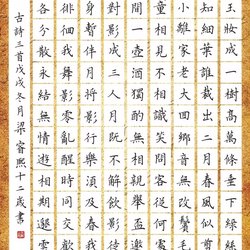 玉妝成一樹高萬條垂下綠絲
知細葉誰裁出二月春風似剪
小離家老大回鄉音無改鬢毛
童相見不相識笑問客從何處
間一壺酒獨酌無相親舉杯邀
對影成三人月既不解飲影徒
身暫伴月將影行樂須及春我
徘徊我舞影零亂醒時同交歡
各分散永結無情遊相期邈雲
古詩三首戊戌冬月梁睿熙十二歲書